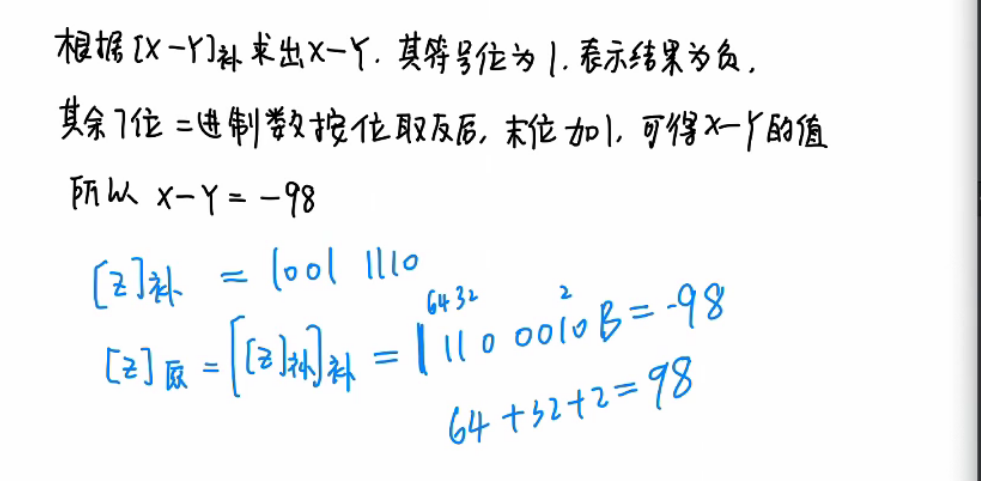 根据[X-Y]补求出X-Y. 其符号位为1. 表示结果为负,
其余7位二进制数按位取反后, 末位加1. 可得X-Y的值
所以 X-Y = -98
[Z]补 = 1001 1110
64 32 2
[Z]原 = [[Z]补]补 = 1 110 0010 B = -98
64 + 32 + 2 = 98